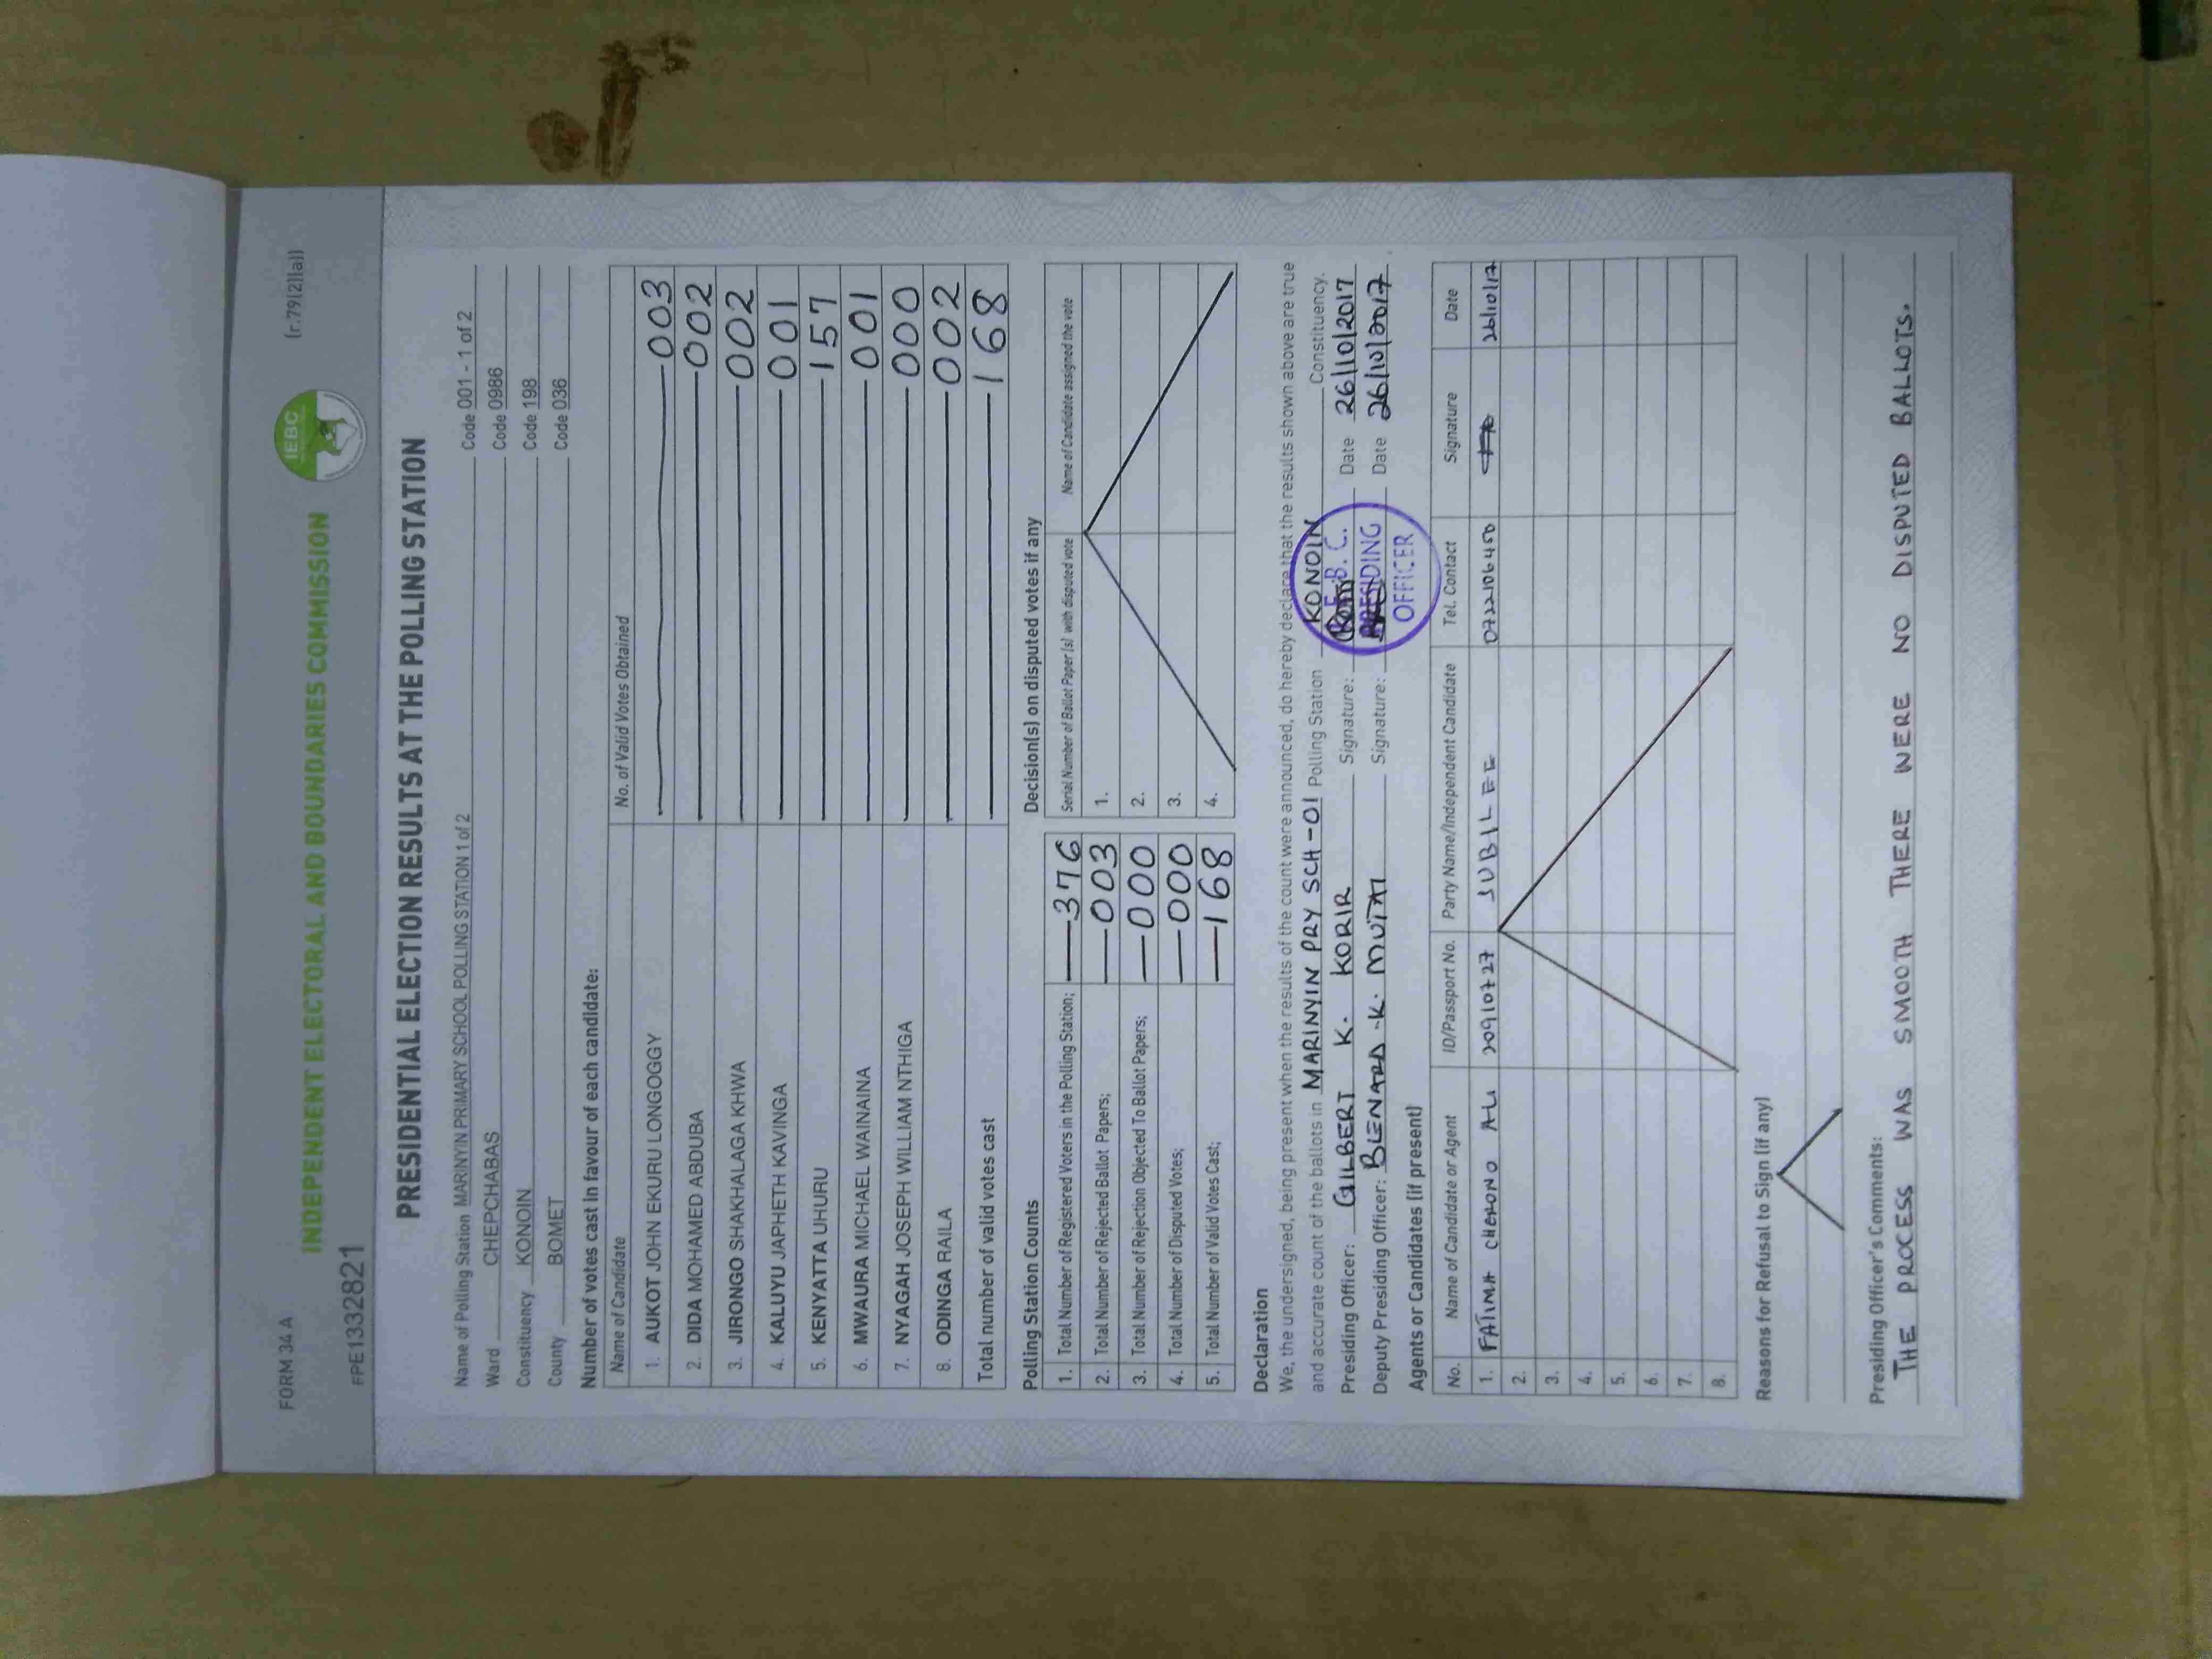 FORM 34 A
(r.79(2)(a))
IEBC
INDEPENDENT ELECTORAL AND BOUNDARIES COMMISSION
FPE1332821
PRESIDENTIAL ELECTION RESULTS AT THE POLLING STATION
Name of Polling Station MARINYIN PRIMARY SCHOOL POLLING STATION 1 of 2 Code 001 - 1 of 2
Ward CHEPCHABAS Code 0986
Constituency KONOIN Code 198
County BOMET Code 036
Number of votes cast in favour of each candidate:
Name of Candidate No. of Valid Votes Obtained
1. AUKOT JOHN EKURU LONGOGGY 003
2. DIDA MOHAMED ABDUBA 002
3. JIRONGO SHAKHALAGA KHWA 002
4. KALUYU JAPHETH KAVINGA 001
5. KENYATTA UHURU 157
6. MWAURA MICHAEL WAINAINA 001
7. NYAGAH JOSEPH WILLIAM NTHIGA 000
8. ODINGA RAILA 002
Total number of valid votes cast 168
Polling Station Counts
1. Total Number of Registered Voters in the Polling Station; 376
2. Total Number of Rejected Ballot Papers; 003
3. Total Number of Rejection Objected To Ballot Papers; 000
4. Total Number of Disputed Votes; 000
5. Total Number of Valid Votes Cast; 168
Decision(s) on disputed votes if any
Serial Number of Ballot Paper(s) with disputed vote Name of Candidate assigned the vote
1.
2.
3.
4.
Declaration
We, the undersigned, being present when the results of the count were announced, do hereby declare that the results shown above are true
and accurate count of the ballots in MARINYIN PRY SCH -01 Polling Station KONOIN Constituency.
Presiding Officer: GILBERT K. KORIR Signature: Date 26/10/2017
Deputy Presiding Officer: BLENARD .K. MUTAI Signature: Date 26/10/2017
I.E.B.C.
PRESIDING
OFFICER
Agents or Candidates (if present)
No. Name of Candidate or Agent ID/Passport No. Party Name/Independent Candidate Tel. Contact Signature Date
1. FATIMA CHERONO ALI 20910727 JUBILEE 0722106450 26/10/17
2.
3.
4.
5.
6.
7.
8.
Reasons for Refusal to Sign (if any)
Presiding Officer's Comments:
THE PROCESS WAS SMOOTH THERE WERE NO DISPUTED BALLOTS.